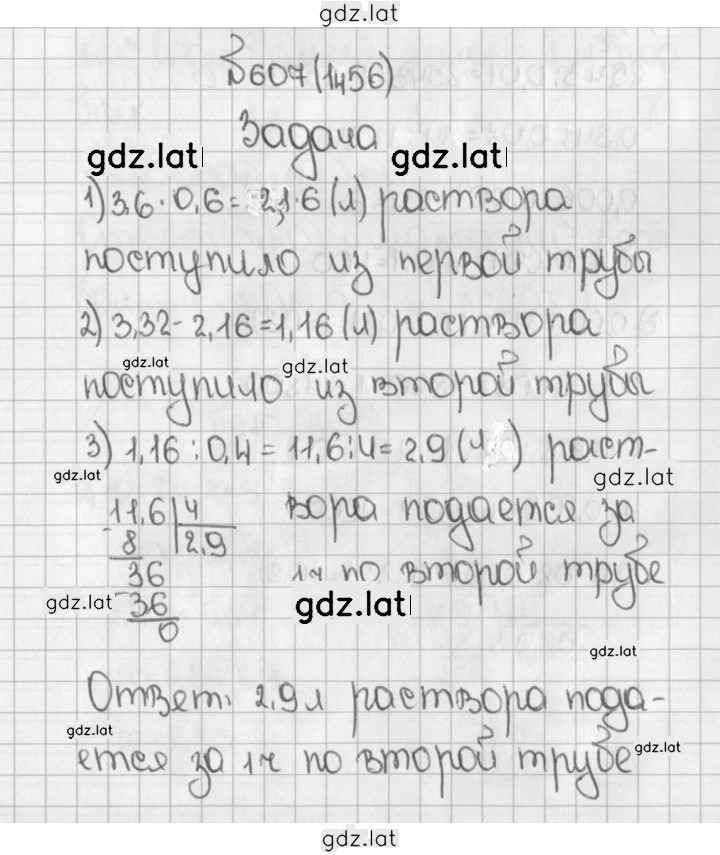 gdz.lat
№607(1456)
Задача
gdz.lat gdz.lat
1) 3,6 · 0,6 = 2,1·6 (л) раствора
поступило из первой трубы
2) 3,32 - 2,16 = 1,16 (л) раствора
gdz.lat gdz.lat
поступило из второй трубы
3) 1,16 : 0,4 = 11,6 : 4 = 2,9 (ч ) раст-
gdz.lat gdz.lat
11,6 | 4 вора подается за
8 2,9
36 1ч по второй трубе
gdz.lat - 36 gdz.lat
0
gdz.lat
Ответ: 2,9 л раствора пода-
gdz.lat
ется за 1ч по второй трубе
gdz.lat
gdz.lat